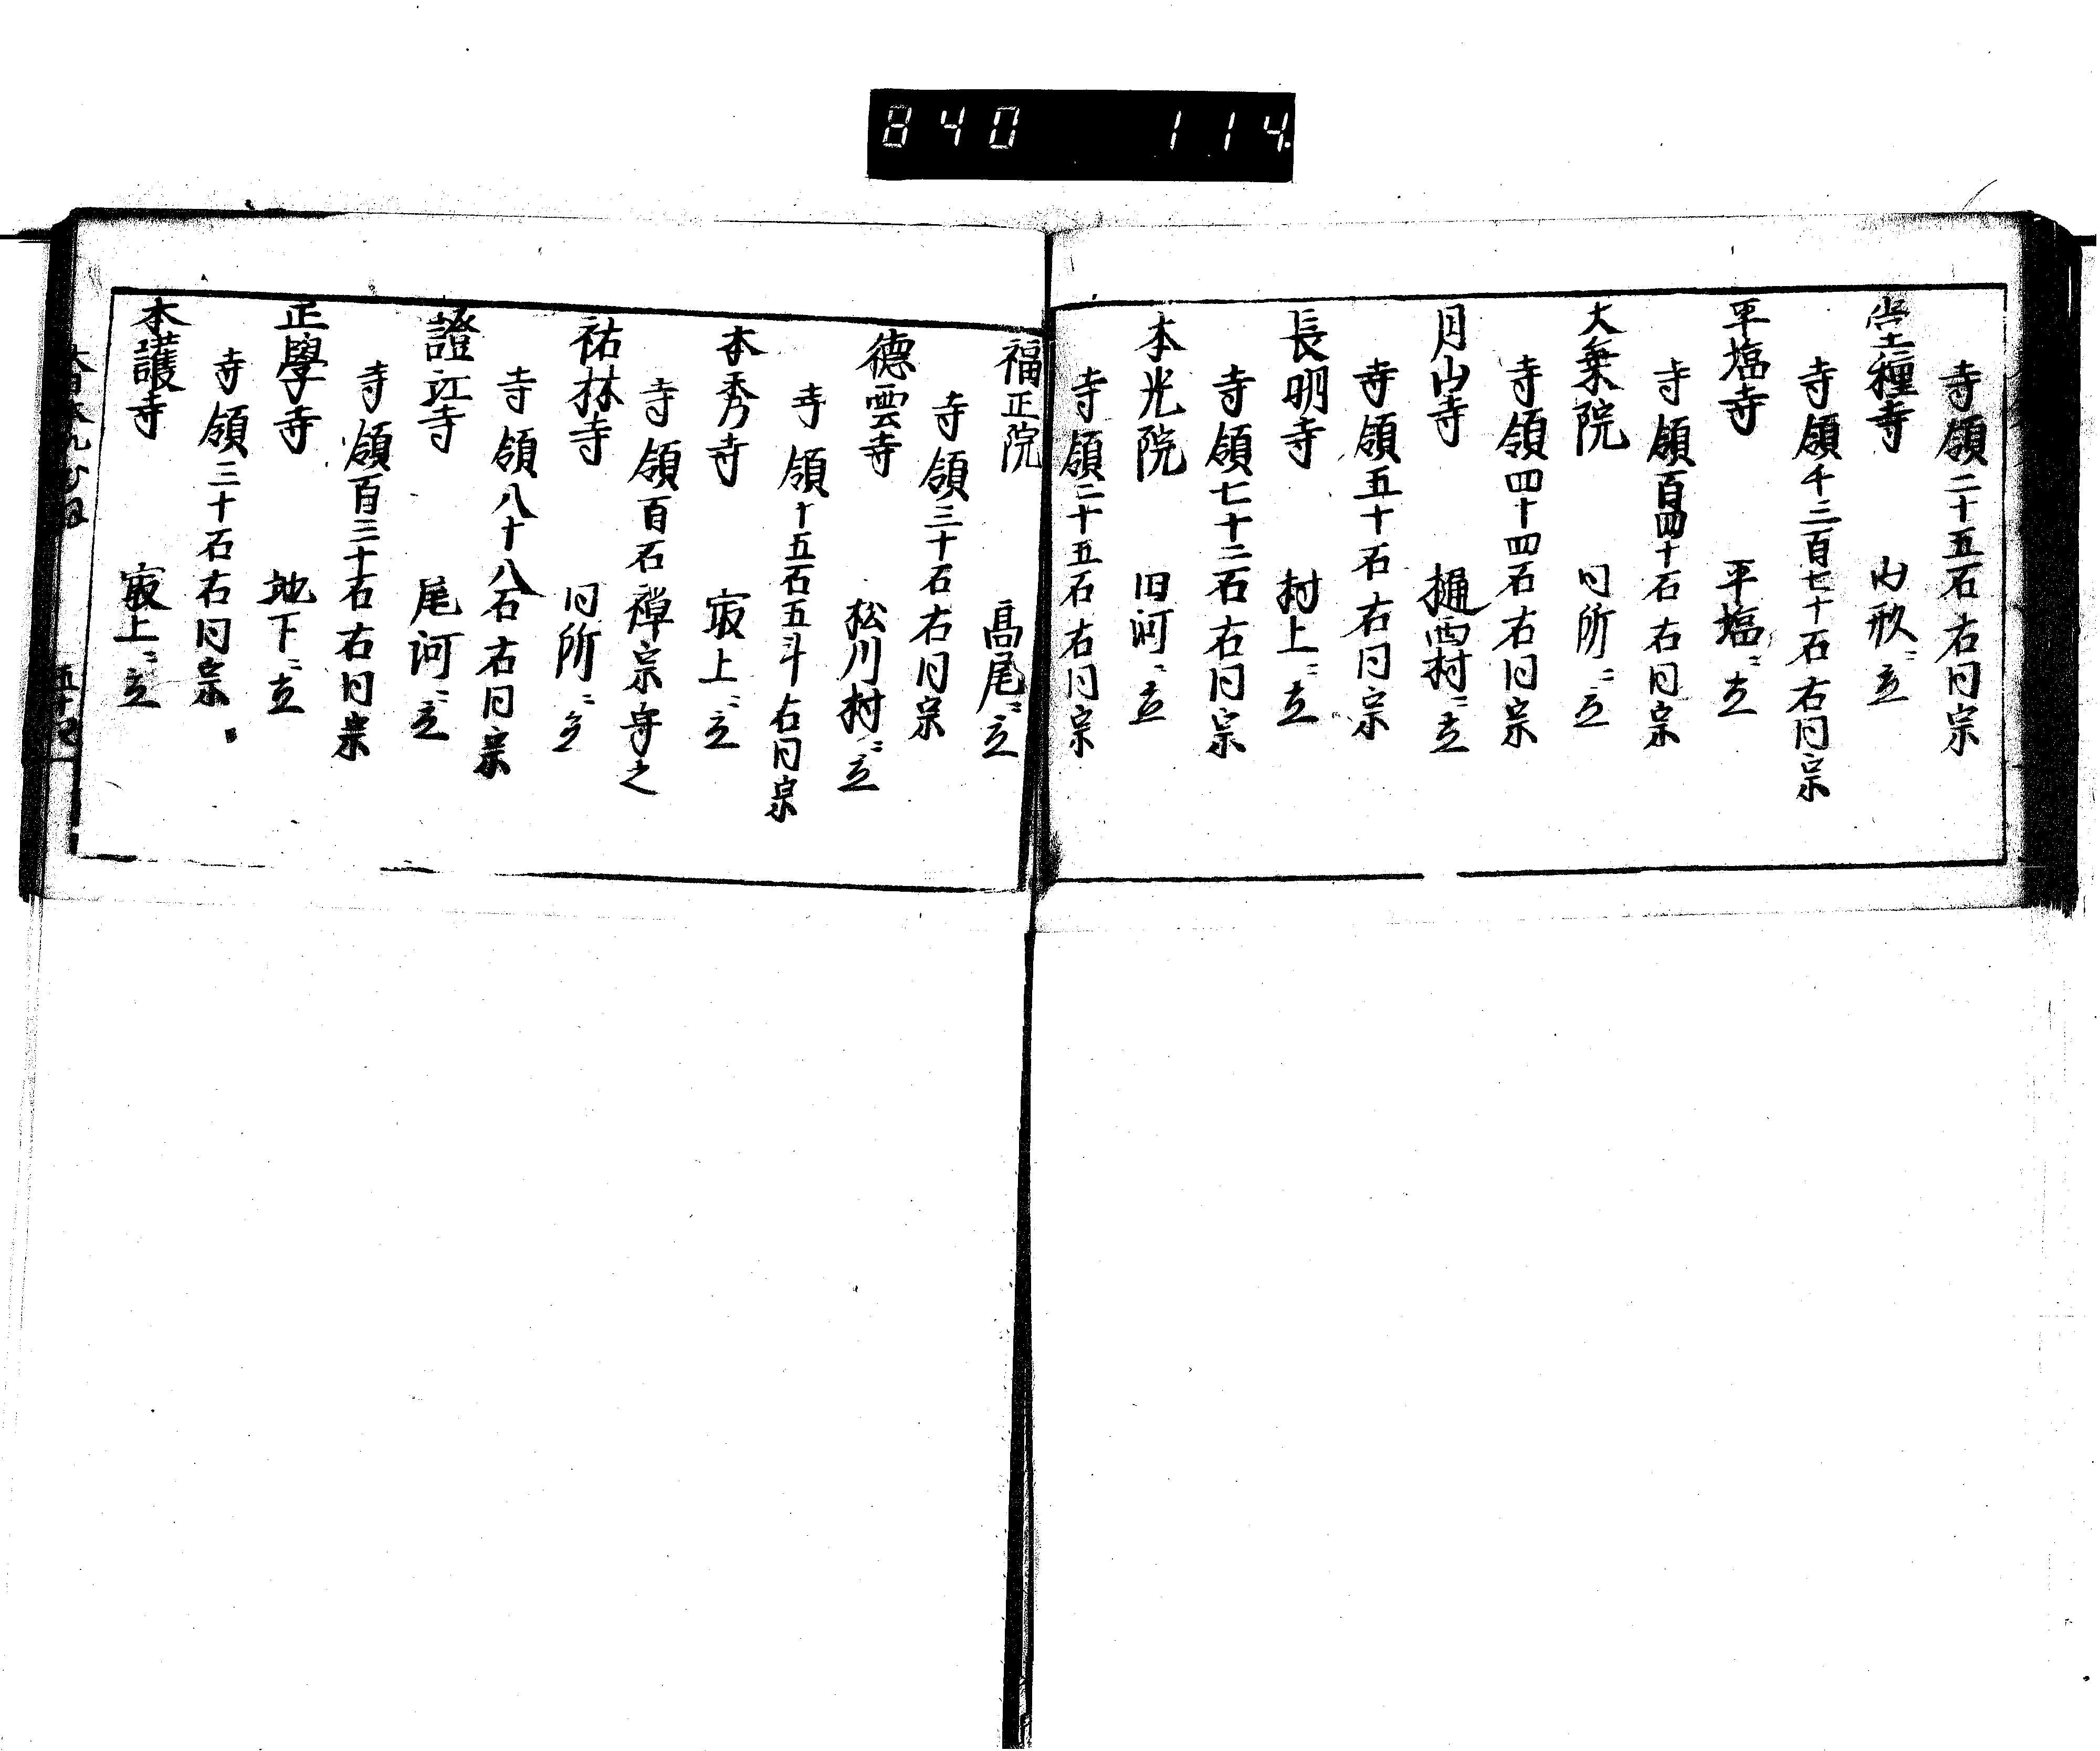 840 114
寺領二十五石右同宗
種寺 内㪽ニ立
寺領千二百七十石右同宗
平塩寺 平塩ニ立
寺領百四十石右同宗
大乗院 同所ニ立
寺領四十四石右同宗
月山寺 樋西村ニ立
寺領五十石右同宗
長明寺 村上ニ立
寺領七十二石右同宗
本光院 旧河ニ立
寺領二十五石右同宗
福正院 高尾ニ立
寺領三十石右同宗
德雲寺 松川村ニ立
寺領十五石五斗右同宗
本秀寺 寂上ニ立
寺領百石禅宗守之
祐林寺 同所ニ立
寺領八十八石右同宗
證江寺 尾河ニ立
寺領百三十石右同宗
正學寺 地下ニ立
寺領三十石右同宗
本護寺 寂上ニ立